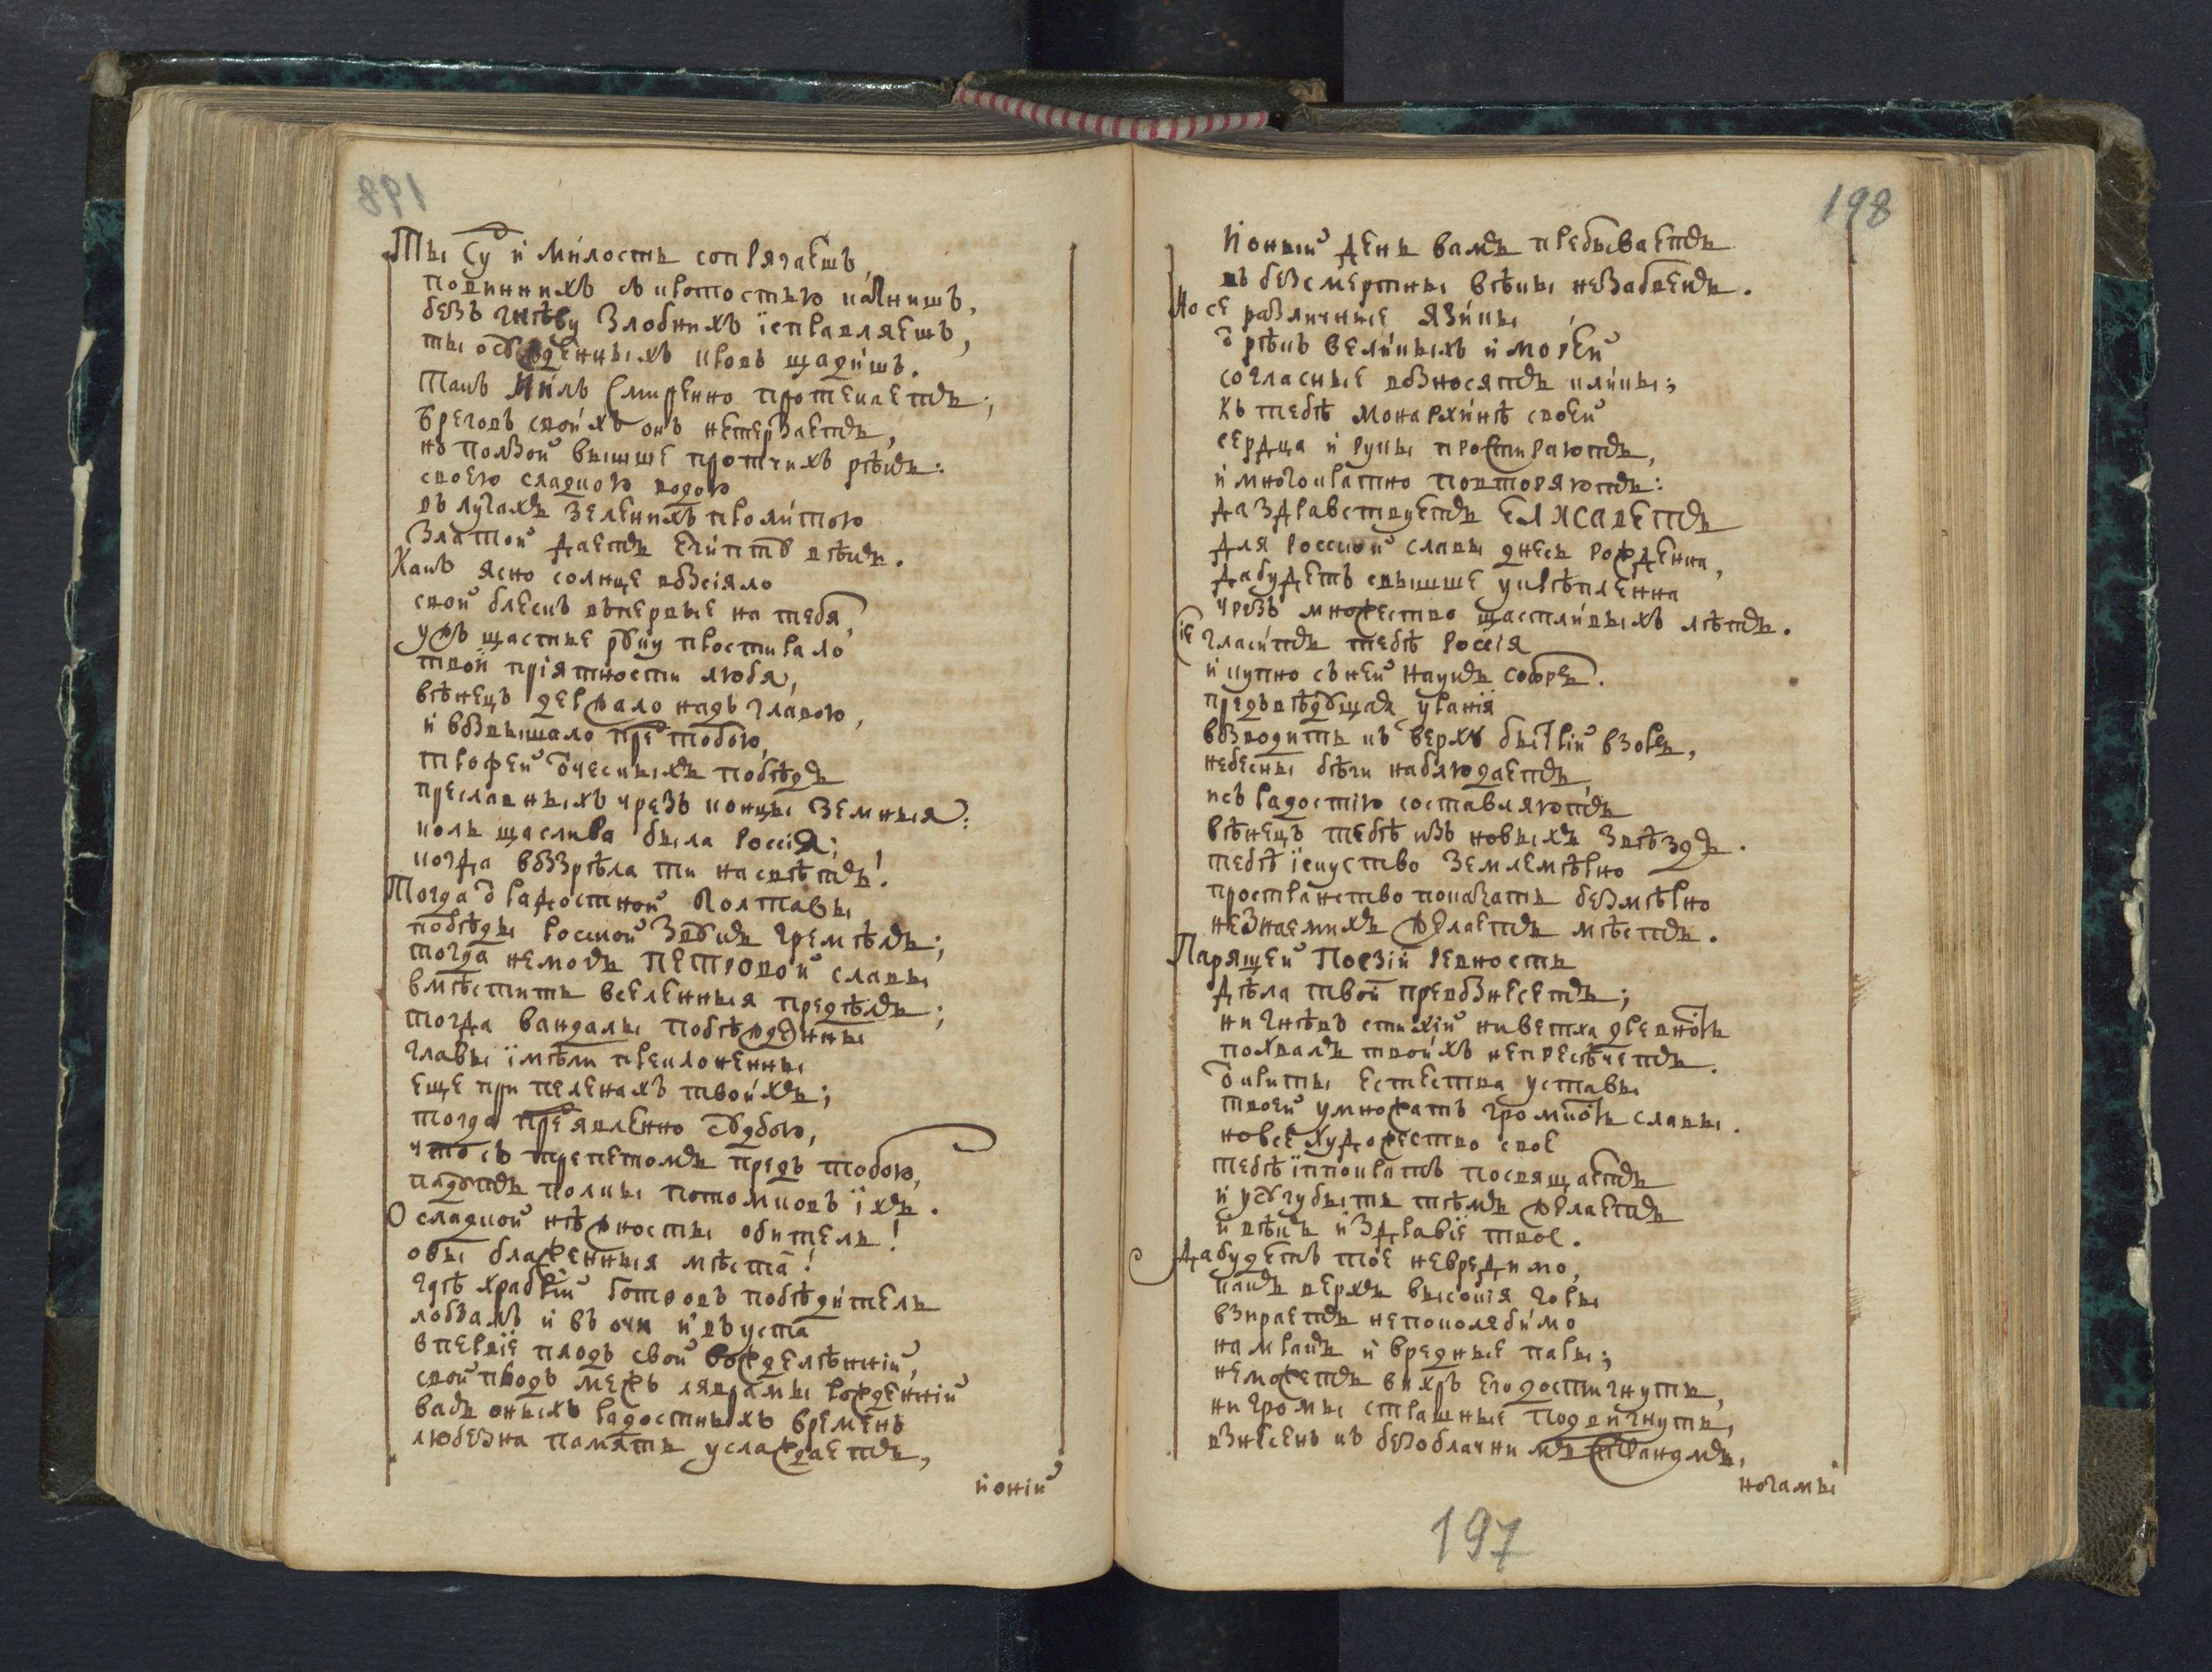 198
Ты су᷃ и милость сопрягаешъ,
повинныхъ съ кротостью казнишъ,
безъ гнѣву злобнихъ їсправляешъ,
ты осужденныхъ кровь щадишъ.
Такъ Нилъ смиренно протекаетъ;
Бреговъ своихъ онъ нетерзаетъ,
нъ ползой вышше протчихъ рѣкъ:
своею сладкою водою
въ лугахъ зеленихъ пролитою
Златой даетъ Египтъ вѣкъ.
Какъ ясно солнце возсіяло
свой блескъ впервые на тебя,
ужъ щастие руку простирало
твои пріятности любя,
вѣнецъ держало надъ главою,
и возвышало пред тобою,
трофеи отческыхъ побѣдъ
преславныхъ чрезъ концы земныя:
коль щаслива была Россія;
когда возрѣла ти на свѣтъ!
Тогда от радостной Полтавы
побѣды Росской звукъ гремѣлъ;
тогда немогъ ПЕТРОВОЙ славы
вмѣстить вселенныя предѣлъ;
тогда вандалы побѣжденны
главы їмѣли преклоненны
еще при пеленахъ твоихъ;
тогда предявленно судбою,
что съ трепетомъ предъ тобою,
падутъ полкы потомковъ їхъ.
О сладкой нѣжносты обитель!
о вы блаженныя мѣста!
гдѣ храбрій Готфовъ побѣдитель
лобзалъ и въ очи и въ уста
впервіе плодъ свой вожделѣнній,
свой плодъ межъ лаврамы рожденній
вадъ оныхъ радостныхъ временъ
любезна память услаждаетъ,
и оній
198
И оный день вамъ пребываетъ
въ безсмертны вѣкы незабвенъ.
Но се различные язикы
от рѣкъ великыхъ и морей
согласные возносятъ кликы;
Къ тебѣ монархинѣ своей
сердца и рукы простираютъ,
и многократно повторяютъ:
да здравствуетъ ЕЛИСАВЕТЪ
для Росской славы днесь рожденна,
да будетъ свышше укрѣпленна
чрезъ множество щастливыхъ лѣтъ.
Сіе гласитъ тебѣ Россія
и купно съ ней наукъ соборъ.
предъвѣдущая уранія
возводитъ къ верхъ быстрій взоръ,
небесны бѣги наблюдаетъ,
ис радостію составляютъ
вѣнецъ тебѣ изъ новыхъ звѣздъ.
тебѣ їскуство землемѣрно
пространство показать безмѣрно
незнаемихъ желаетъ мѣстъ.
Парящей Поезіи ревность
дѣла твои превознесетъ;
ни гнѣвъ стихій ни ветха древность
похвалъ твоихъ непресѣчетъ.
Открыты естества уставы
твоей умножатъ громкость славы.
новсе художество свое
тебѣ їппократъ посвящаетъ
и усугубыть тѣмъ желаетъ
и вѣкъ и здравіе твое.
Да будетъ тое невредимо,
какъ верхъ высокія горы
взираетъ непоколебимо
на мракъ и вредные пары;
неможетъ вихръ его достигнуть,
ни громы страшные подвигнуть,
взнесенъ къ безоблачнимъ странамъ,
ногамы
197